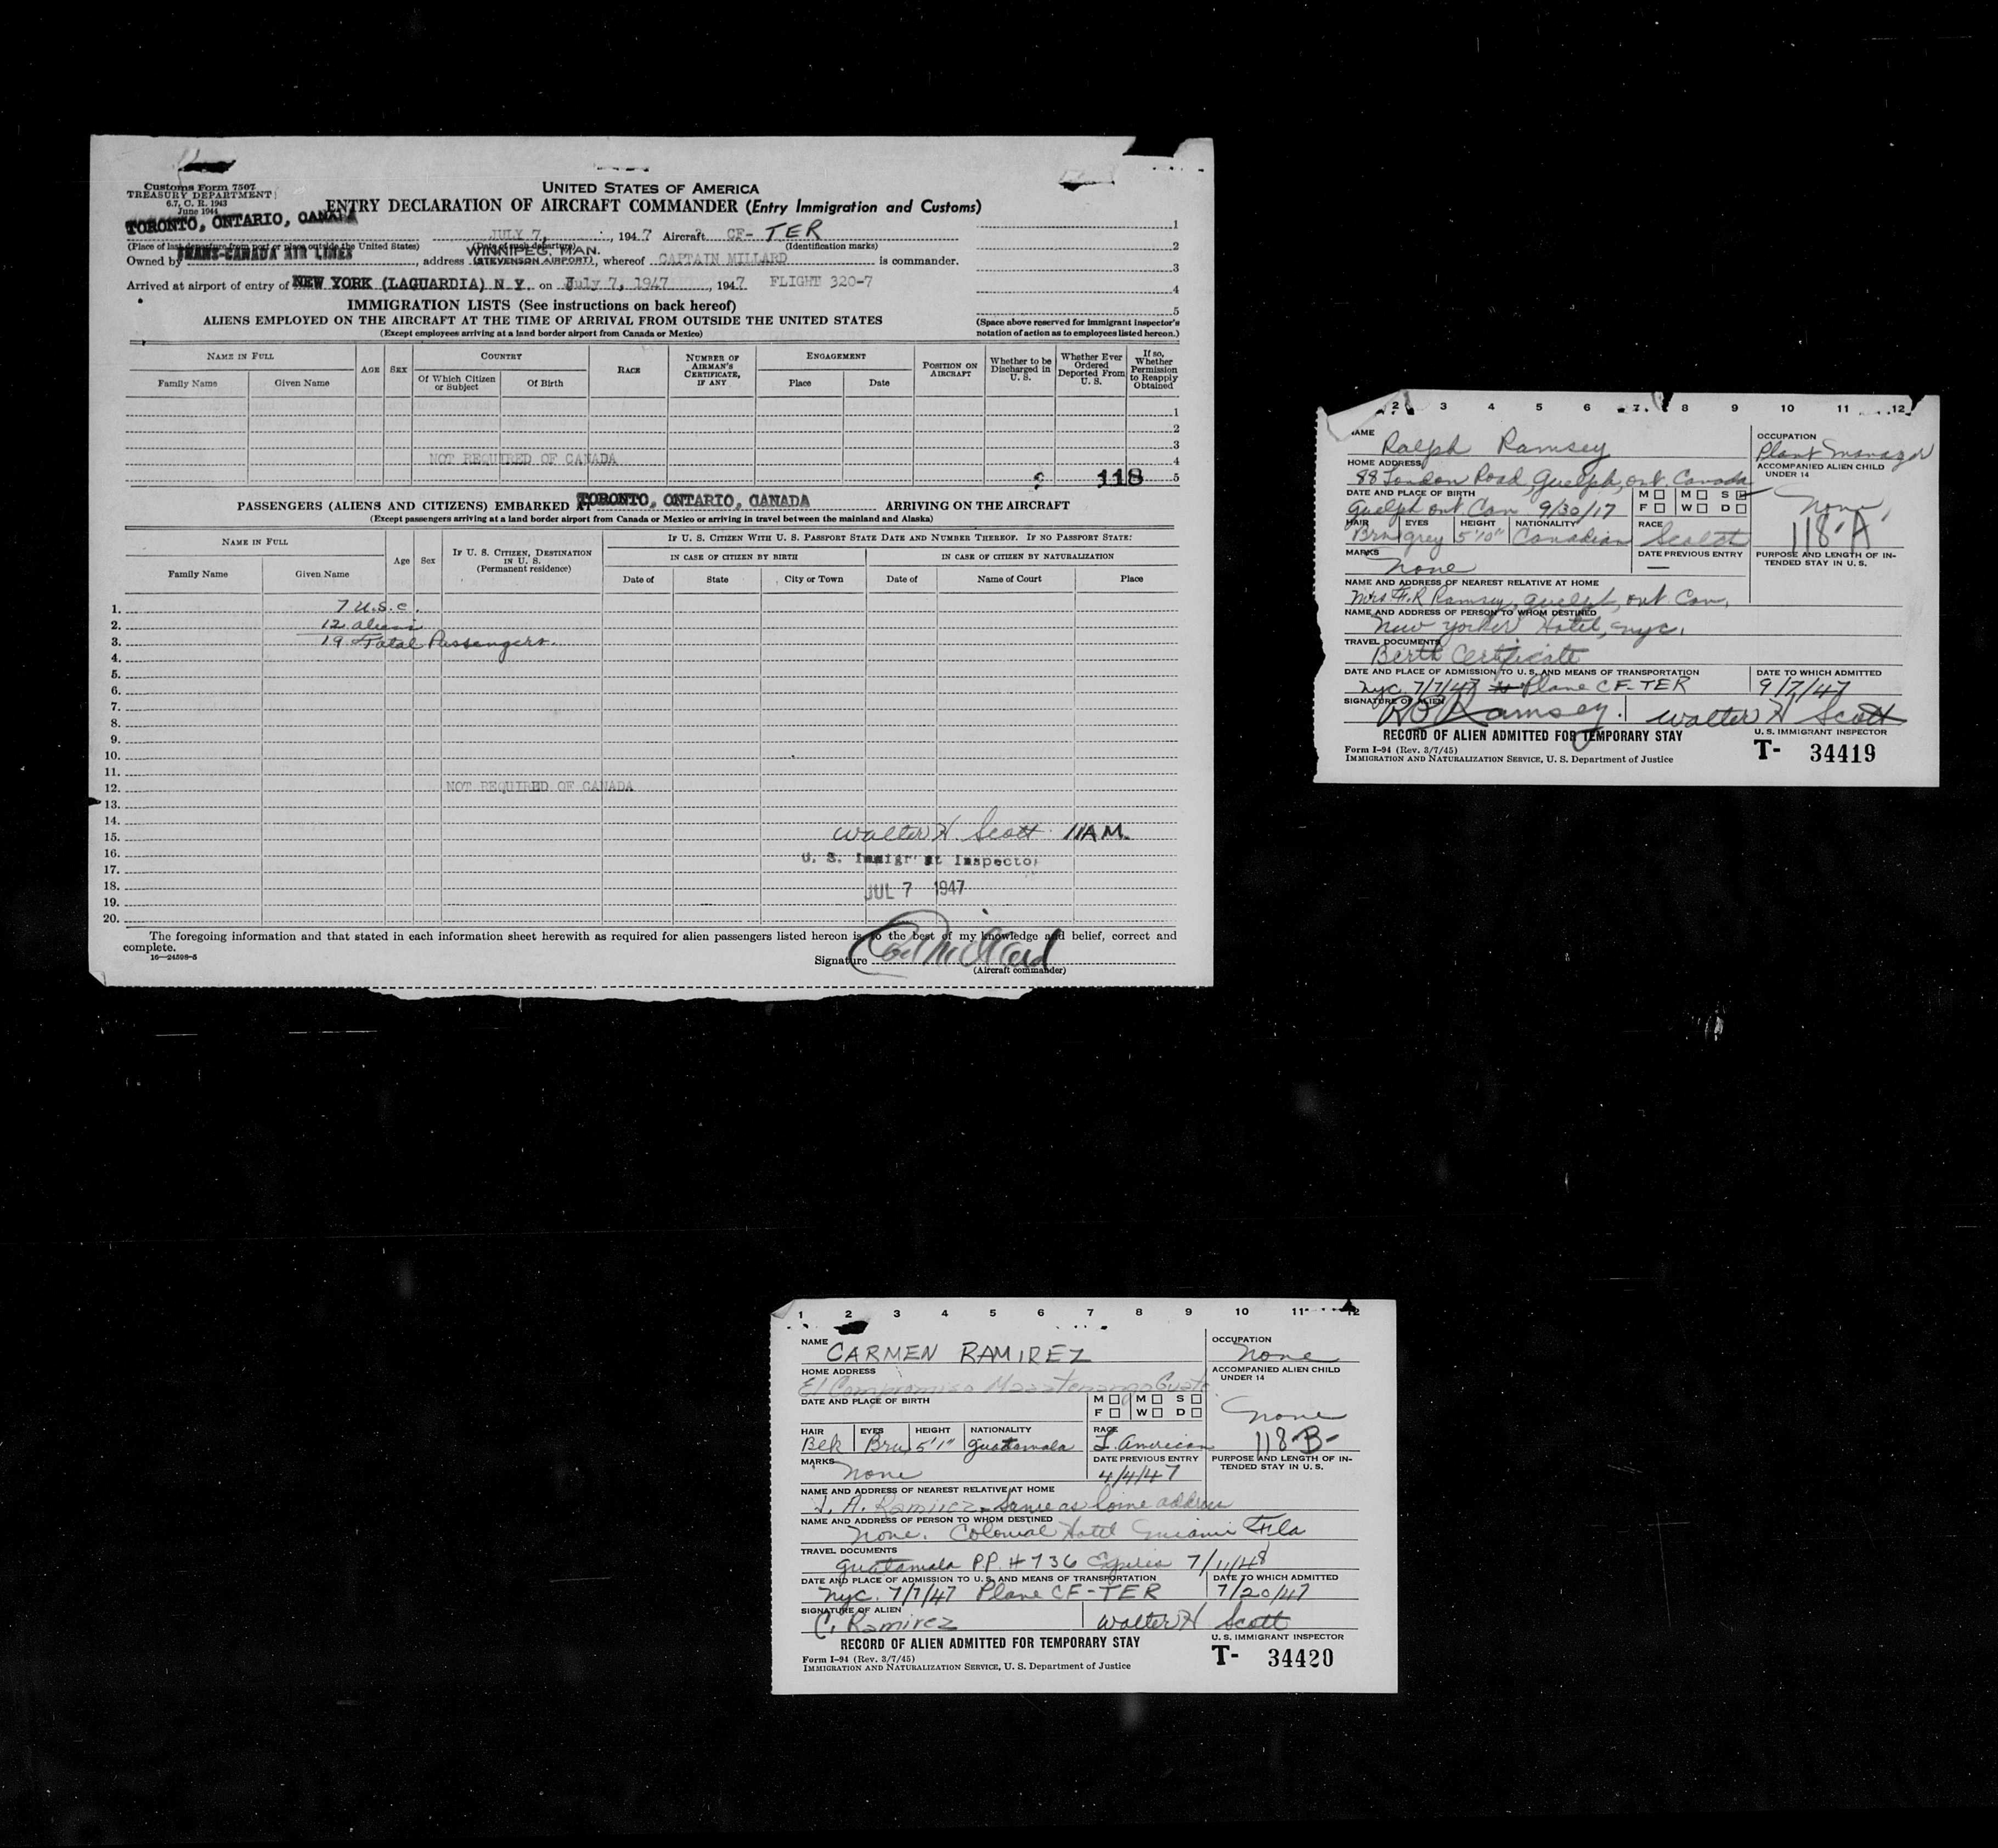 Customs Form 7507
TREASURY DEPARTMENT
6.7, C. R. 1943
June 1944
UNITED STATES OF AMERICA
ENTRY DECLARATION OF AIRCRAFT COMMANDER (Entry Immigration and Customs)
TORONTO, ONTARIO, CANADA JULY 7, 1947 Aircraft CF-TER
(Place of last departure from port or place outside the United States) (Date of such departure) (Identification marks)
WINNIPEG, MAN.
Owned by TRANS-CANADA AIR LINES, address (STEVENSON AIRPORT), whereof CAPTAIN MILLARD is commander.
Arrived at airport of entry of NEW YORK (LAGUARDIA) N Y. on July 7, 1947, 1947 FLIGHT 320-7
1
2
3
4
5
IMMIGRATION LISTS (See instructions on back hereof)
ALIENS EMPLOYED ON THE AIRCRAFT AT THE TIME OF ARRIVAL FROM OUTSIDE THE UNITED STATES
(Except employees arriving at a land border airport from Canada or Mexico)
(Space above reserved for immigrant inspector's
notation of action as to employees listed hereon.)
NAME IN FULL
Family Name Given Name
AGE SEX
COUNTRY
Of Which Citizen or Subject Of Birth
RACE
NUMBER OF AIRMAN'S CERTIFICATE, IF ANY
ENGAGEMENT
Place Date
POSITION ON AIRCRAFT
Whether to be Discharged in U. S.
Whether Ever Ordered Deported From U. S.
If so, Whether Permission to Reapply Obtained
1
2
3
NOT REQUIRED OF CANADA 4
118 5
PASSENGERS (ALIENS AND CITIZENS) EMBARKED AT TORONTO, ONTARIO, CANADA ARRIVING ON THE AIRCRAFT
(Except passengers arriving at a land border airport from Canada or Mexico or arriving in travel between the mainland and Alaska)
NAME IN FULL
Family Name Given Name
Age Sex
IF U. S. CITIZEN, DESTINATION IN U. S. (Permanent residence)
IF U. S. CITIZEN WITH U. S. PASSPORT STATE DATE AND NUMBER THEREOF. IF NO PASSPORT STATE:
IN CASE OF CITIZEN BY BIRTH IN CASE OF CITIZEN BY NATURALIZATION
Date of State City or Town Date of Name of Court Place
1. 7 U.S.C.
2. 12 aliens
3. 19 Total Passengers.
4.
5.
6.
7.
8.
9.
10.
11.
12. NOT REQUIRED OF CANADA
13.
14.
15. Walter H. Scott 11 AM.
16. U. S. Immigrant Inspector
17.
18. JUL 7 1947
19.
20.
The foregoing information and that stated in each information sheet herewith as required for alien passengers listed hereon is to the best of my knowledge and belief, correct and
complete.
16—24508-5
Signature
(Aircraft commander)
2 3 4 5 6 7 8 9 10 11 12
NAME Ralph Ramsey
OCCUPATION Plant Manager
HOME ADDRESS 88 London Road, Guelph, Ont. Canada
ACCOMPANIED ALIEN CHILD UNDER 14 None
118-A
DATE AND PLACE OF BIRTH Guelph Ont. Can 9/30/17
M M S
F W D
HAIR Brn EYES grey HEIGHT 5'10" NATIONALITY Canadian RACE Scotch
MARKS None
DATE PREVIOUS ENTRY —
PURPOSE AND LENGTH OF INTENDED STAY IN U. S.
NAME AND ADDRESS OF NEAREST RELATIVE AT HOME
Mrs F.R Ramsey, Guelph, Ont. Can.
NAME AND ADDRESS OF PERSON TO WHOM DESTINED
New Yorker Hotel, nyc.
TRAVEL DOCUMENTS
Birth Certificate
DATE AND PLACE OF ADMISSION TO U. S. AND MEANS OF TRANSPORTATION
nyc. 7/7/47 Plane CF-TER
DATE TO WHICH ADMITTED
9/7/47
SIGNATURE OF ALIEN Ramsey. Walter H Scott
RECORD OF ALIEN ADMITTED FOR TEMPORARY STAY U. S. IMMIGRANT INSPECTOR
Form I-94 (Rev. 3/7/45)
IMMIGRATION AND NATURALIZATION SERVICE, U. S. Department of Justice
T- 34419
1 2 3 4 5 6 7 8 9 10 11 12
NAME CARMEN RAMIREZ
OCCUPATION None
HOME ADDRESS
El Compromiso Mazatenango Guate
ACCOMPANIED ALIEN CHILD UNDER 14
None
118-B-
DATE AND PLACE OF BIRTH
M M S
F W D
HAIR Blk EYES Brn HEIGHT 5'1" NATIONALITY Guatamala RACE L. American
MARKS None
DATE PREVIOUS ENTRY 4/4/47
PURPOSE AND LENGTH OF INTENDED STAY IN U. S.
NAME AND ADDRESS OF NEAREST RELATIVE AT HOME
A. Ramirez - Same as home address
NAME AND ADDRESS OF PERSON TO WHOM DESTINED
None. Colonial Hotel Miami Fla
TRAVEL DOCUMENTS
Guatamala P.P. # 736 Expires 7/11/48
DATE AND PLACE OF ADMISSION TO U. S. AND MEANS OF TRANSPORTATION
nyc. 7/7/47 Plane CF-TER
DATE TO WHICH ADMITTED
7/20/47
SIGNATURE OF ALIEN
C. Ramirez Walter H Scott
RECORD OF ALIEN ADMITTED FOR TEMPORARY STAY U. S. IMMIGRANT INSPECTOR
Form I-94 (Rev. 3/7/45)
IMMIGRATION AND NATURALIZATION SERVICE, U. S. Department of Justice
T- 34420